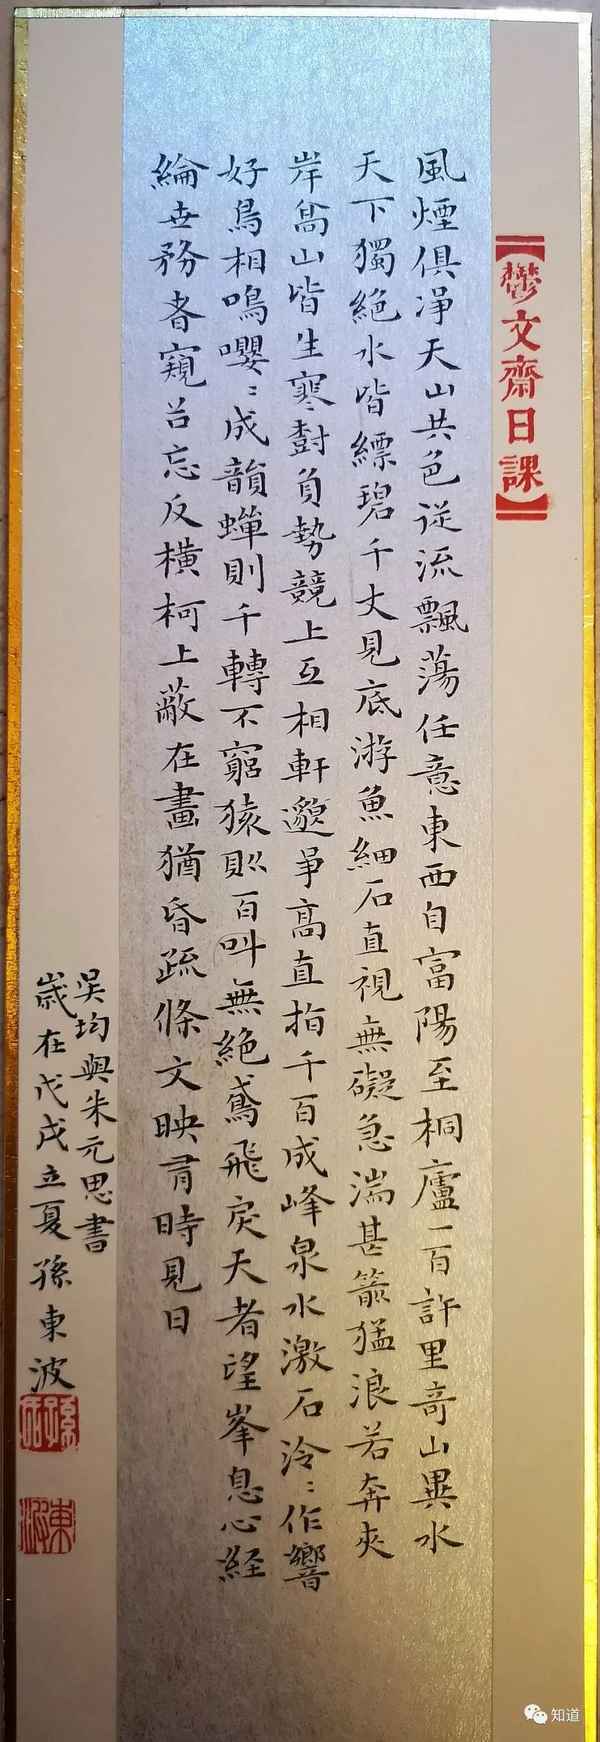 【鬱文齋日課】
風煙俱凈天山共色從流飄蕩任意東西自富陽至桐廬一百許里奇山異水
天下獨絕水皆縹碧千丈見底游魚細石直視無礙急湍甚箭猛浪若奔夾
岸高山皆生寒樹負勢競上互相軒邈爭高直指千百成峰泉水激石泠〻作響
好鳥相鳴嚶〻成韻蟬則千轉不窮猿則百叫無絕鳶飛戾天者望峯息心經
綸世務者窺谷忘反橫柯上蔽在晝猶昏疏條交映有時見日
吳均與朱元思書
歲在戊戌立夏孫東波
孫
東波
知道